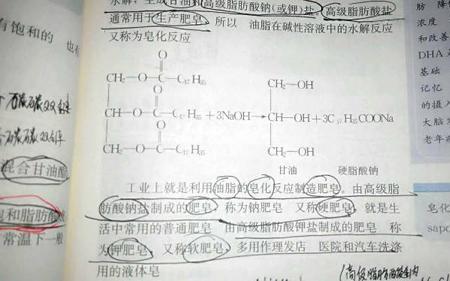 水解，生成甘油和高级脂肪酸钠(或钾)盐 高级脂肪酸盐
通常用于生产肥皂 所以 油脂在碱性溶液中的水解反应
又称为皂化反应
O
CH₂—O—C—C₁₇H₃₅
O
CH—O—C—C₁₇H₃₅ + 3NaOH → CH—OH + 3C₁₇H₃₅COONa
O
CH₂—O—C—C₁₇H₃₅
CH₂—OH
CH₂—OH
甘油 硬脂酸钠
工业上就是利用油脂的皂化反应制造肥皂．由高级脂
肪酸钠盐制成的肥皂 称为钠肥皂 又称硬肥皂，就是生
活中常用的普通肥皂 由高级脂肪酸钾盐制成的肥皂 称
为钾肥皂，又称软肥皂，多用作理发店 医院和汽车洗涤
用的液体皂
有饱和的 也
混合甘油酯
和脂肪酸
常温下一般
肪 降
浓度
和改善
DHA
基础
记忆
的摄入
大脑
老年
皂化
sapo